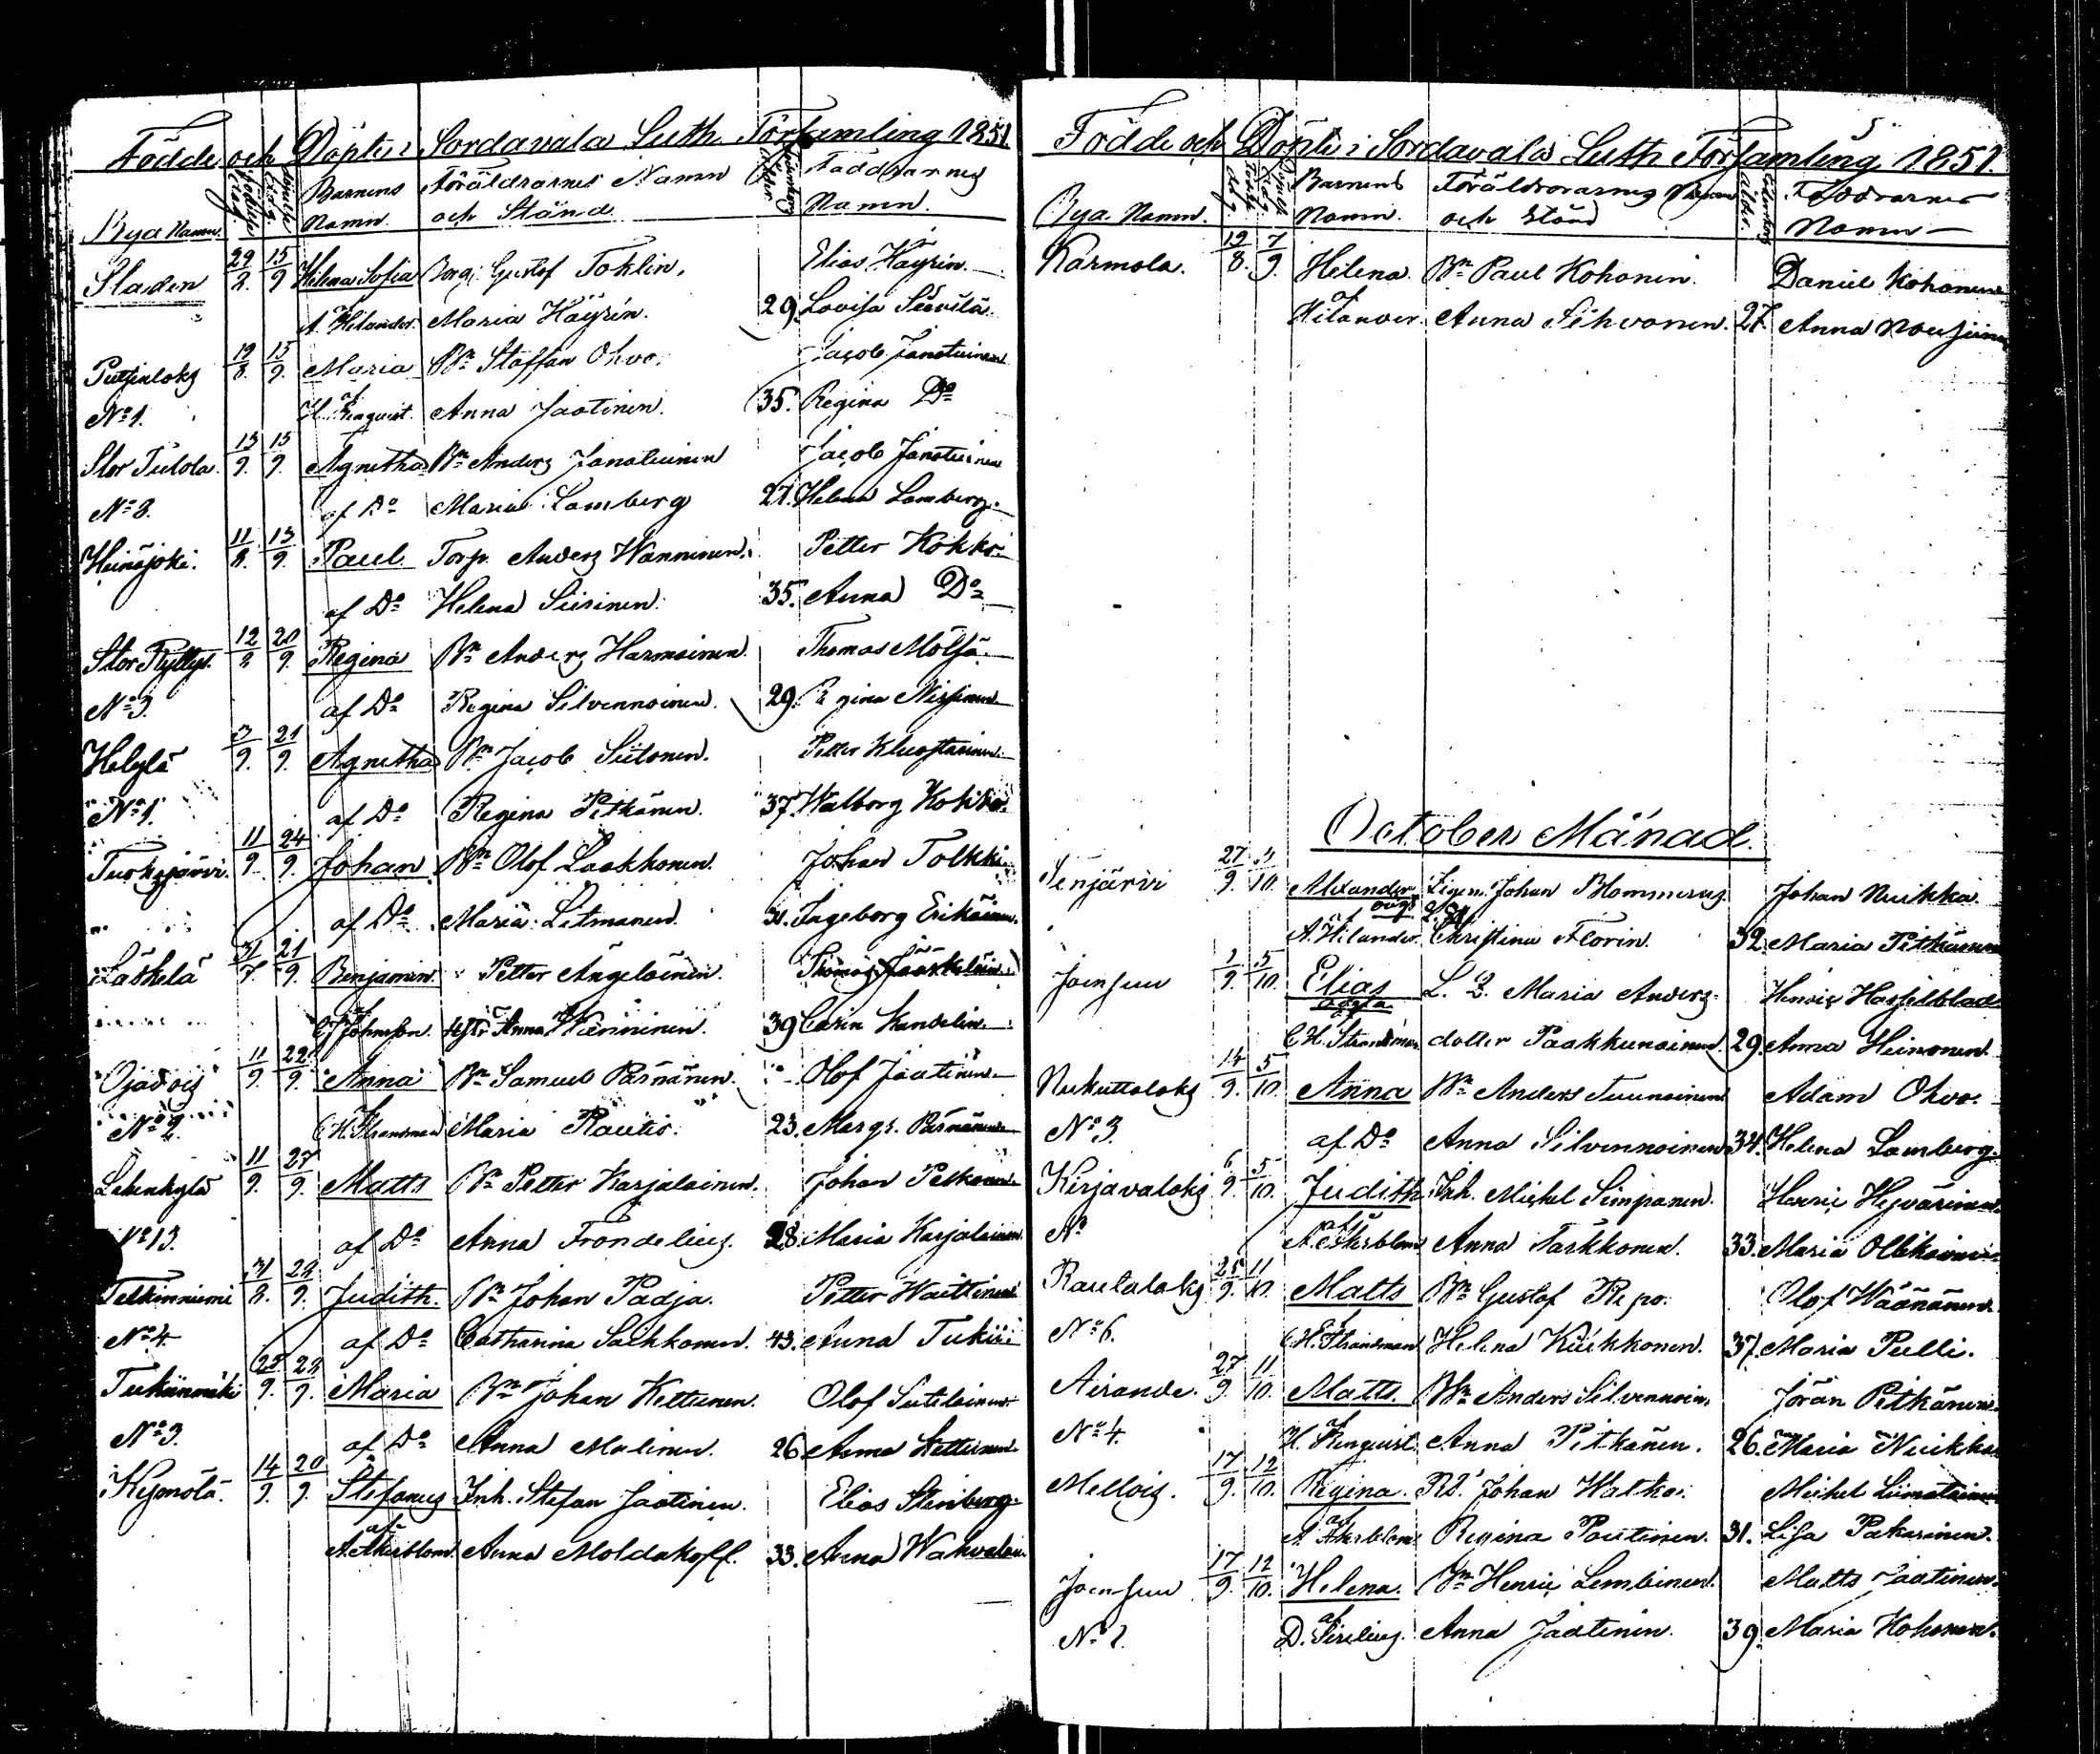 Födde och Döpte i Sordavala Luth. Församling 1851
Bya Namn. Barnens Namn. Föräldrarnes Namn och Stånd. Faddrarnes Namn.
Staden 22/8. 15/9 Helena Sofia Borg. Gustof Tohlin. Elias Häyrin.
A. Helander. Maria Häyrin. 29. Lovisa
Putsinloks 19/8. 15/9. Maria Bn Staffan Ohvo. Jacob Janatuinen
No 1. af H. Renquist. Anna Jaatinen. 35. Regina Do
Stor Tulola. 13/9. 15/9. Agnetha Bn Anders Janatuinen Jacob Janatuinen
No 8. af Do Maria Lamberg 27. Helena Lamberg.
Heinäjoki. 11/8. 13/9. Paul Torp. Anders Wanninen. Petter Kokko
af Do Helena Siirinen. 35. Anna Do
Stor Ryttys. 12/8 20/9. Regina Bn Anders Harmoinen. Thomas Mölsä.
No 3. af Do Regina Silvennoinen. 29. Regina Nissinen
Helylä 3/9. 21/9. Agnetha Bn Jacob Siitonen. Petter
No 1. af Do Regina Pitkänen. 37. Walborg
Tuoksjärvi. 11/9. 24/9. Johan Bn Olof Laakkonen. Johan Tolkki
af Do Maria Litmanen. 31. Ingeborg Erikäinen.
Läskelä 31/7. 21/9. Benjamin. Petter Ängeläinen. Thomas Jääskeläin.
af Johnsson. Hstr Anna Wänninen. 39 Carin Kandelin.
Ojavois 11/9. 22/9. Anna Bn Samuel Parnänen. Olof Jaatinen
No 2. C. H. Strandman Maria Rautio. 23. Margr. Parnänen
Lahenkylä 11/9. 27/9. Matts Bn Petter Karjalainen. Johan Pelkonen
No 13. af Do Anna Frondelius. 28. Maria Karjalainen
Telkinniemi 31/8. 28/9. Judith. Bn Johan Padja. Petter Waittinen
No 4. af Do Catharina Saikkonen. 43. Anna Tukia
Tukianmäki 25/9. 28/9. Maria Bn Johan Kettunen. Olof Sutelainen
No 3. af Do Anna Malinen. 26 Anna Kettunen.
Kymölä. 14/9. 20/9. Stefanus Inh. Stefan Jaatinen. Elias Stenberg.
af A. Åkerblom. Anna Moldakoff. 33. Anna Wahvalain.
Födde och Döpte i Sordavala Luth Församling 1851.
Bya Namn. Barnens Namn. Föräldrarnes Namn och Stånd Faddrarnes Namn
Karmola. 19/8. 7/9. Helena. Bn Paul Kohonen. Daniel Kohonen
af Helander. Anna Sihvonen. 27. Anna Nousiain
October Månad.
Senjärvi 27/9. 3/10. Alexander Johan Blommerus. Johan Nuikka
af A. Helander. Christina Florin. 32. Maria Pitkänen
Joensuu 2/9. 5/10. Elias oägta L. Q. Maria Anders- Henric Hasselblad
C. H. Strandman. dotter Paakkunainen. 29. Anna Heinonen
Nukuttaloks 14/9. 5/10. Anna Bn Anders Tuunainen Adam Ohvo.
No 3. af Do Anna Silvennoinen 34. Helena Lamberg.
Kirjavaloks 6/9. 5/10. Judith. Inh. Mickel Simpanen. Henric Hyvärinen.
No af A. Åkerblom Anna Tarkkonen. 33. Maria Ollikainen
Rautaloks 25/9. 11/10. Matts Bn Gustof Repo. Olof Wäänänen.
No 6. C. H. Strandman Helena Kuikkonen. 37. Maria Pulli.
Airande. 27/9. 11/10. Matts. Bn Anders Silvennoin. Jöran Pitkänen.
No 4. af H. Renquist Anna Pitkänen. 26. Maria Nuikka
Mellois. 17/9. 12/10. Regina. Rd. Johan Hatka. Michel Liimatainen
af A. Åkerblom Regina Poutinen. 31. Lisa Pakarinen.
Joensuu 17/9. 12/10. Helena. Bn Henric Lembinen. Matts Jaatinen.
No 1. af D. Sirelius. Anna Jaatinen. 39. Maria Kohonen.